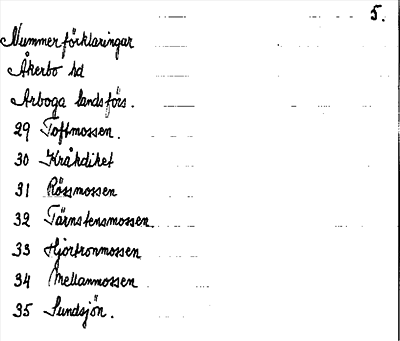 5.
Nummerförklaringar
Åkerbo hd
Arboga landsförs.
29 Toftmossen.
30 Kråkdiket
31 Rössmossen
32 Tärnstensmossen
33 Hjortronmossen
34 Mellanmossen
35 Sundsjön.